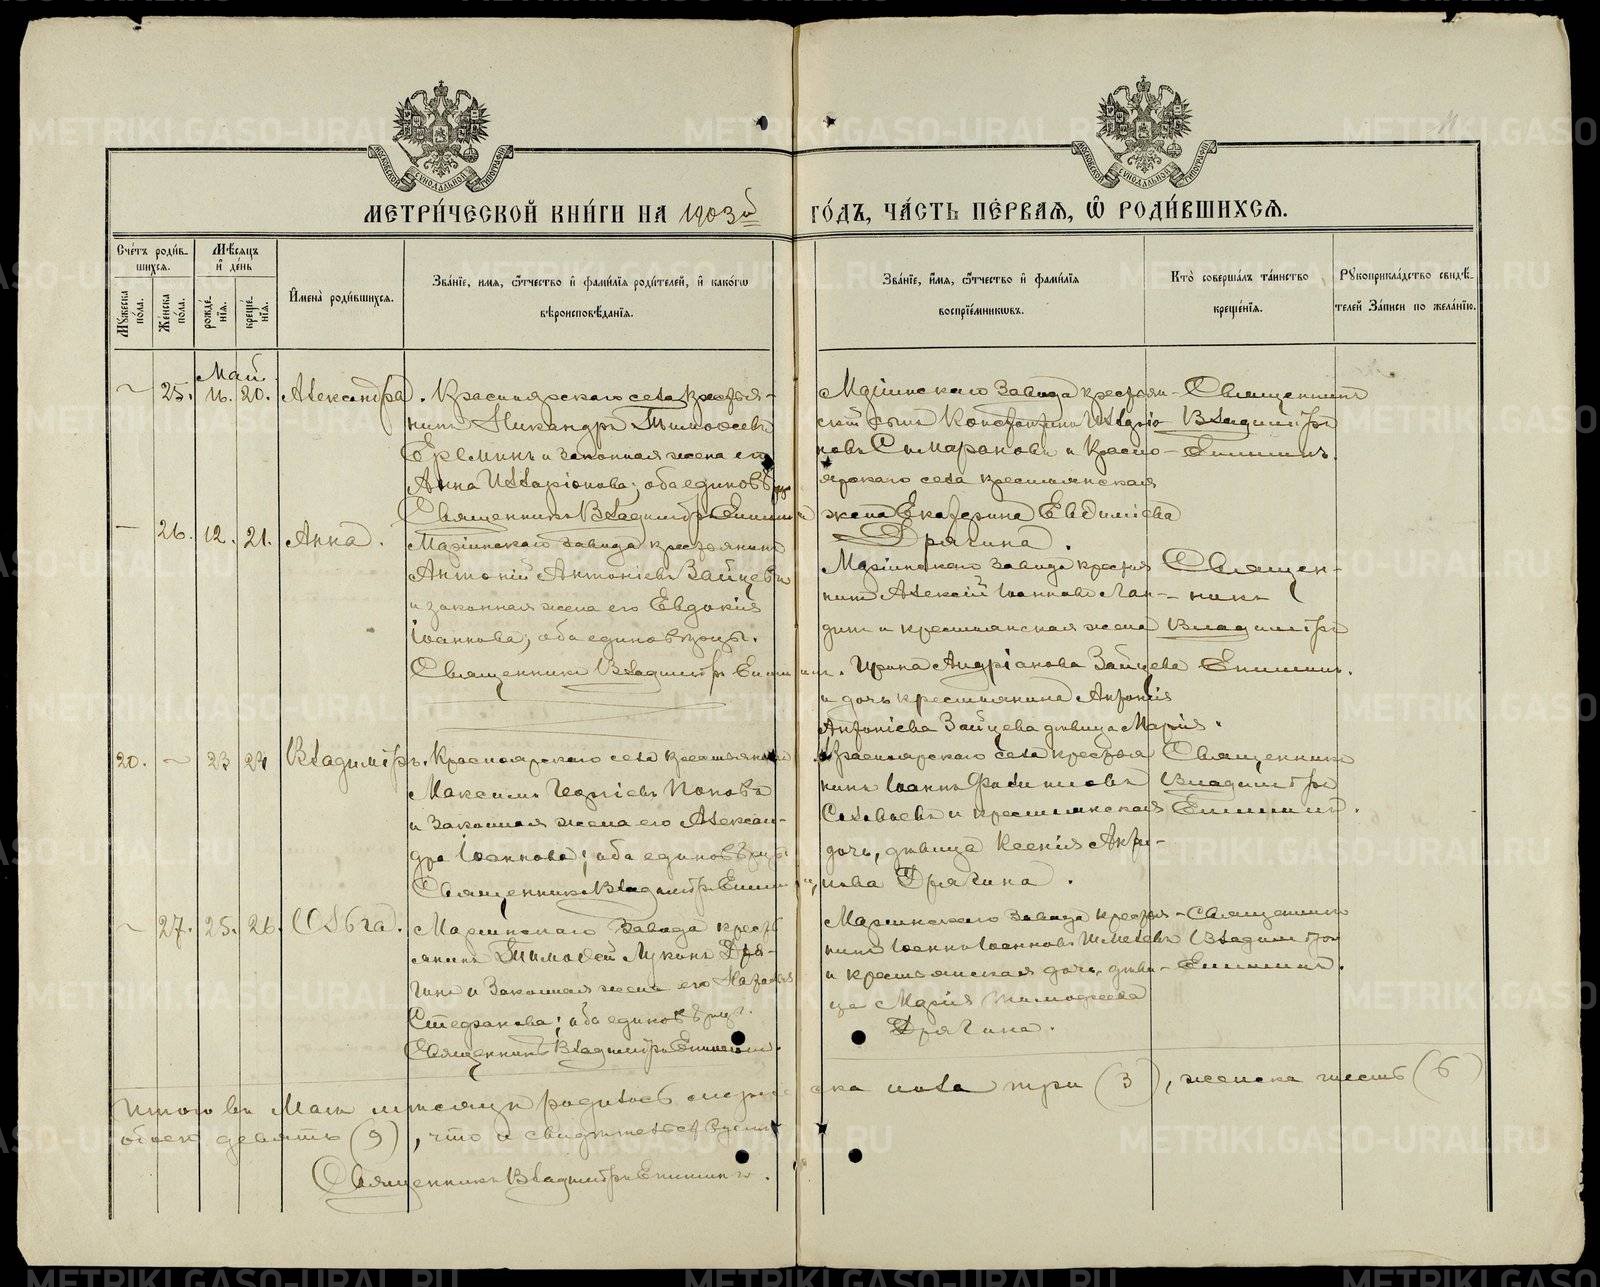 МЕТРИ́ЧЕСКОЙ КНИ́ГИ НА 1903й ГО́ДЪ, ЧА́СТЬ ПЕ́РВАЯ, Ѽ РОДИ́ВШИХСЯ.
Сче́тъ роди́в-
шихся.
Мѣ́сяцъ
и҆ де́нь
Му́жеска
по́ла.
Же́нска
по́ла.
рожде́-
нїя.
креще́-
нїя.
И҆мена̀ роди́вшихся.
Зва́нїе, и҆мя, ѻ҆́тчество и҆ фами́лїя роди́телей, и҆ како́гѡ
вѣроисповѣ́данїя.
Зва́нїе, и҆́мя, ѻ҆́тчество и҆ фами́лїя
воспрїе́мникѡвъ.
Кто̀ соверша́лъ та́инство
креще́нїя.
Рукоприкла́дство свидѣ́-
телей за́писи по жела́нїю.
Май
25. 16. 20. Александра.
Красноярскаго села крестья-
нинъ Никандръ Тимоѳеевъ
Ереминъ и законная жена его
Анна Илларіонова; оба единовѣрцы
Священникъ Владиміръ Епишинъ
Маріинскаго завода крестьян-
скій сынъ Константинъ Илларіо-
новъ Самарановъ и Красно-
ярскаго села крестьянская
жена Екатерина Евдиміева
Дрягина.
Священникъ
Владиміръ
Епишинъ.
26. 12. 21. Анна.
Маріинскаго завода крестьянинъ
Антоній Антоніевъ Зайцевъ
и законная жена его Евдокія
Іоаннова; оба единовѣрцы.
Священникъ Владиміръ Епишинъ.
Маріинскаго завода крестья
нинъ Алексій Іоанновъ Лан-
динъ и крестьянская жена
Ирина Андріанова Зайцева
и дочь крестьянина Антонія
Антоніева Зайцева дѣвица Марія.
Священ-
никъ
Владиміръ
Епишинъ.
20. 23 24 Владиміръ.
Красноярскаго села крестьянинъ
Максимъ Георгіевъ Поповъ
и законная жена его Алексан-
дра Іоаннова; оба единовѣрцы
Священникъ Владиміръ Епишинъ
Красноярскаго села крестья
нинъ Іоаннъ Филипповъ
Соловьевъ и крестьянская
дочь, дѣвица Ксенія Анти-
пова Дрягина.
Священникъ
Владиміръ
Епишинъ.
27. 25. 26. Ольга.
Маріинскаго завода кресть
янинъ Тимоѳей Лукинъ Дря-
гинъ и законная жена его Наталія
Стефанова; оба единовѣрцы.
Священникъ Владиміръ Епишинъ.
Маріинскаго завода крестья-
нинъ Іоаннъ Іоанновъ Шмелевъ
и крестьянская дочь, дѣви-
ца Марія Тимофеева
Дрягина.
Священникъ
Владиміръ
Епишинъ.
Итого въ Маѣ мѣсяцѣ родилось мужеска пола три (3), женска шесть (6)
обоего девять (9), что и свидѣтельствуемъ
Священникъ Владиміръ Епишинъ.
METRIKI.GASO-URAL.RU